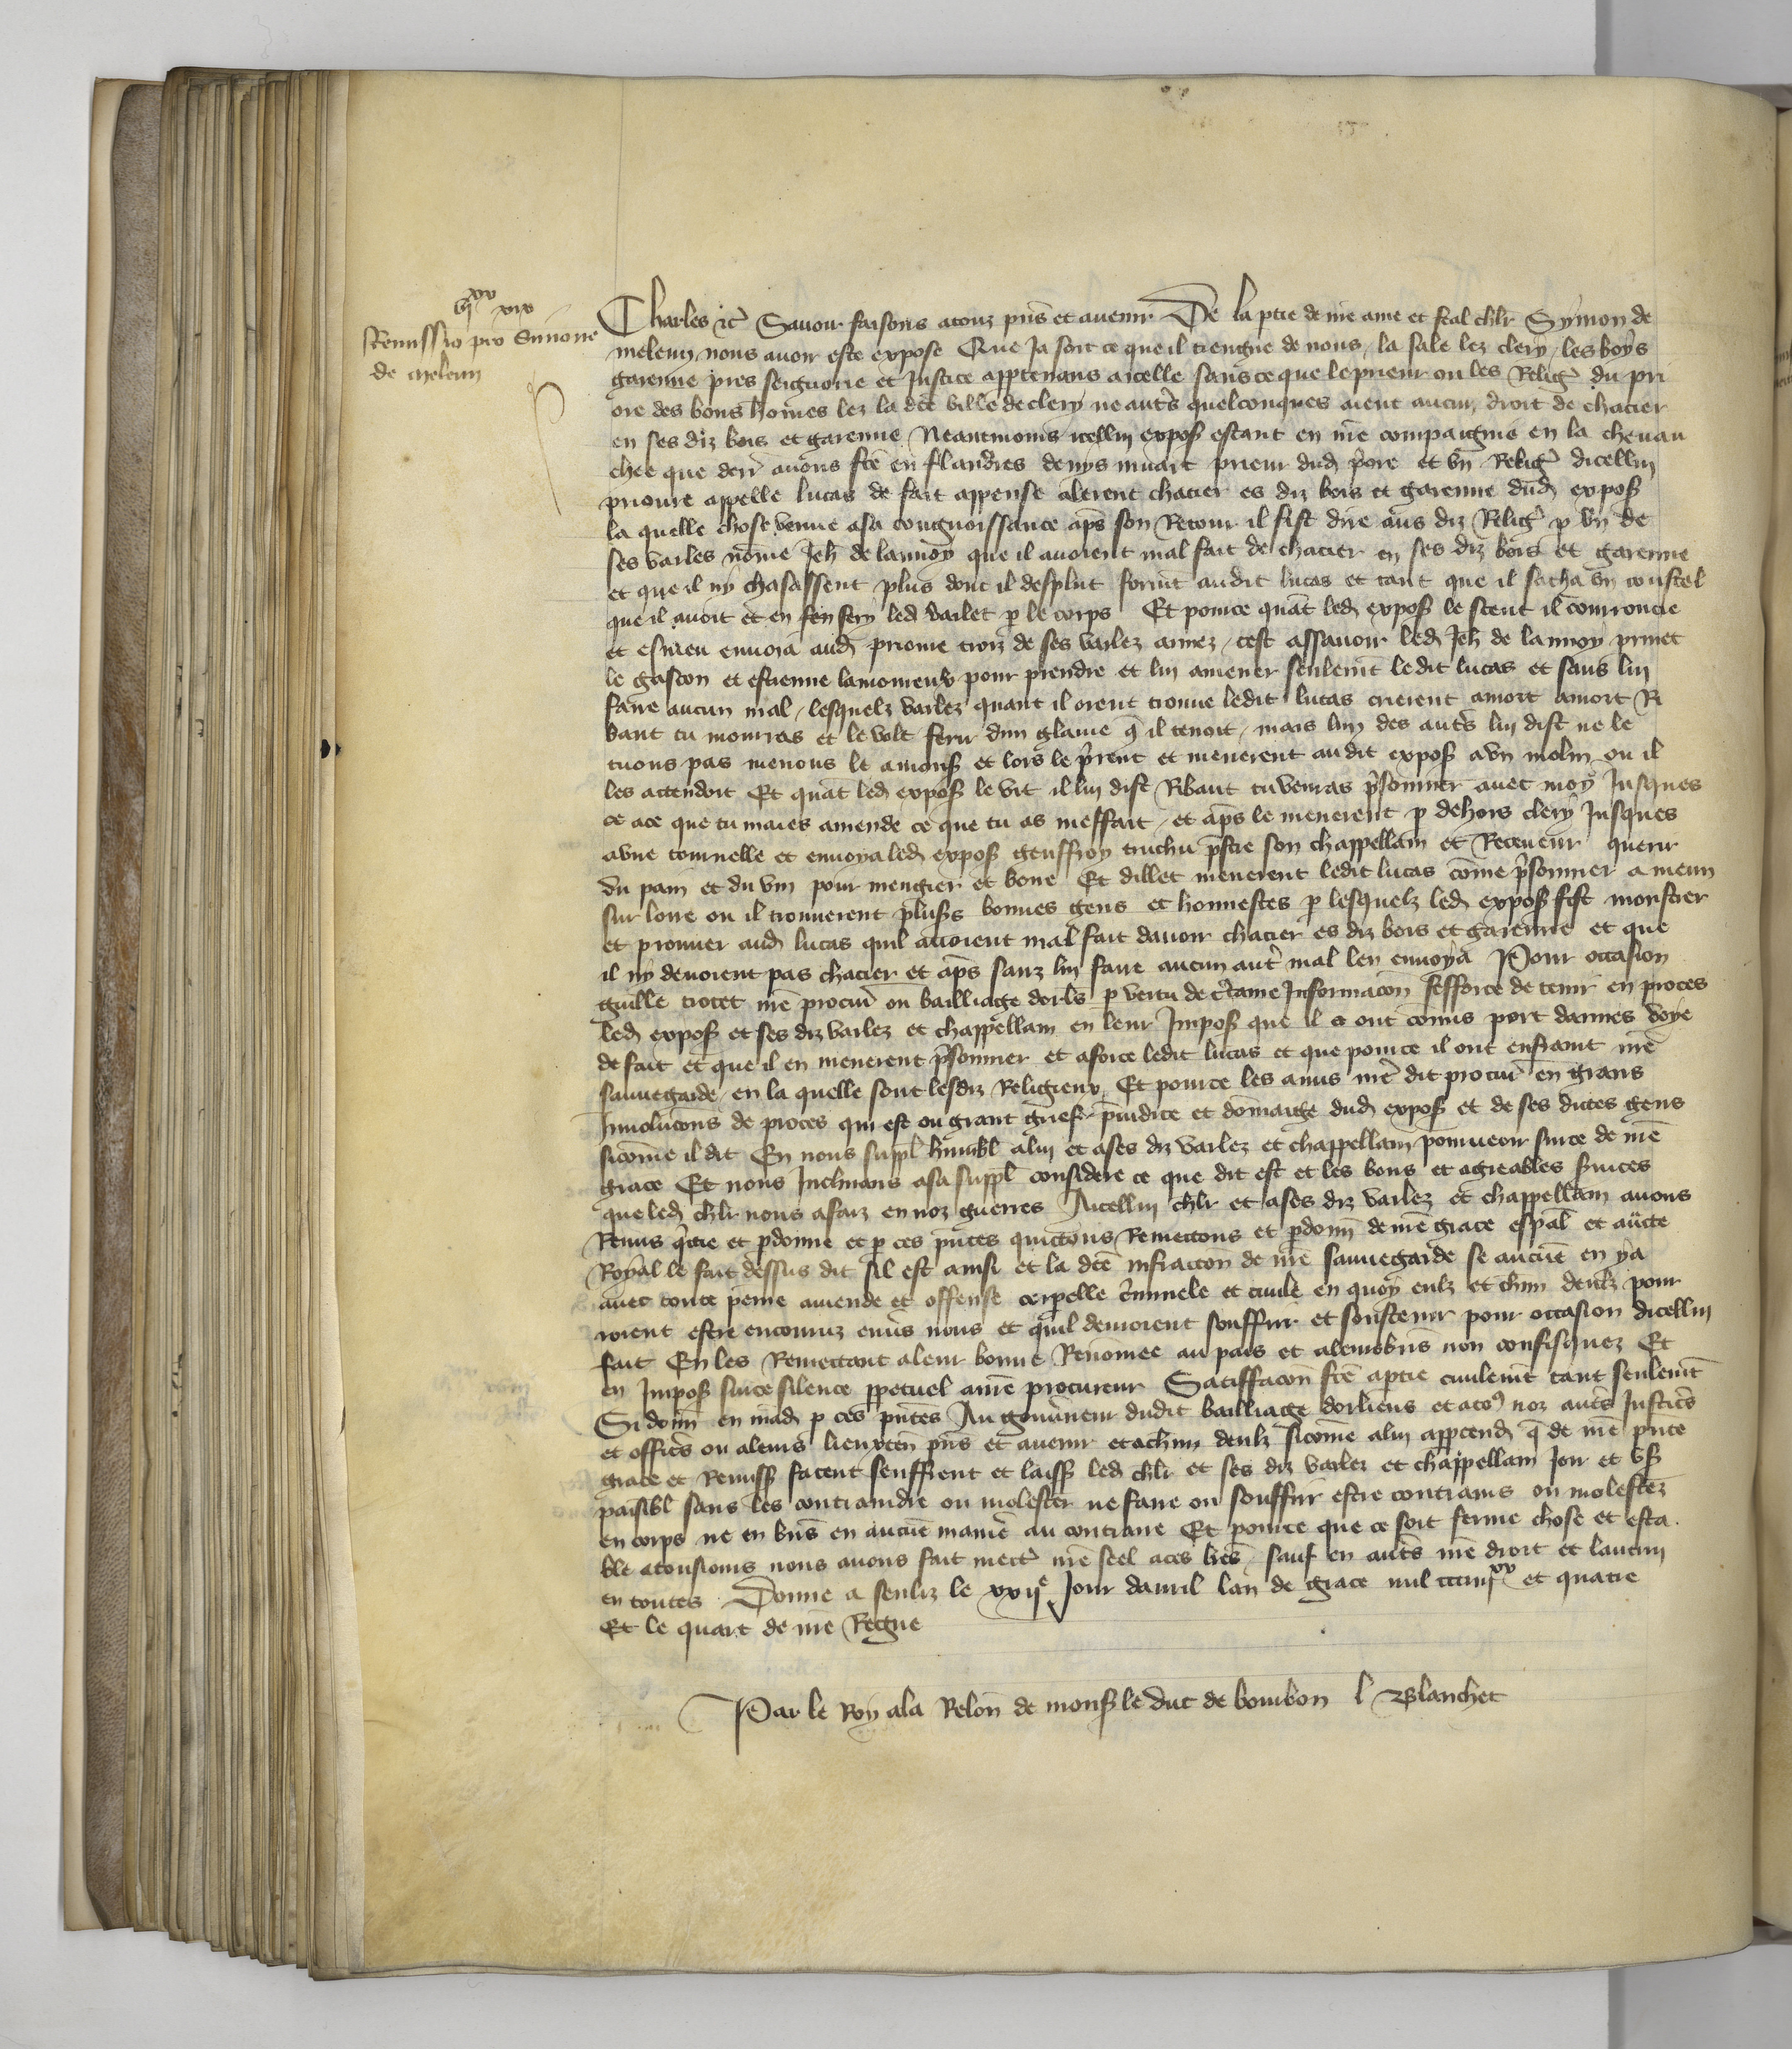 vii xx xix
Remissio pro Simone
de meleun
Charles etc̃ Sauoir faisons atouz p̃ns et auenir De la ptie de n̄re ame et feal chlr Symon de
meleun nous auoir este expose Que Ja soit ce que il tiengne de nous la sale lez clery les boys
garenne pres seignorie et Justice apptenans a icelle sans ce que le prieur ou les Relig̃ du pri
ore des bons hom̄es lez la dc̃e ville de clery ne autr̃s quelconques aient aucun droit de chacier
en ses diz bois et garenne Neantmoins icellui expos̃ estant en nr̃e compaignie en la cheuau
chee que derr̃ auons fc̃e en flandres denys prieur dud̃ p̃ore et vn Relig̃ dicellui
prioure appelle lucas de fait appense alerent chacier es diz bois et garenne dud̃ expos̃
la quelle chose venue asa congnoissance ap̃s son Retour il fist dire aus diz Relig̃ p vn de
ses varles nōme Jeh̃ de lannoy que il auoient mal fait de chacier en ses diz bois et garenne
et que il ny chasassent plus dont il desplut form̃t audit lucas et tant que il sacha vn coustel
que il auoit et en fery led̃ varlet p le corps Et pource quãt led̃ expos̃ le sceut il courroucie
et esmeu enuoia aud̃ prioure troiz de ses varlez armez cest assauoir led̃ Jeh̃ de lannoy
le gascon et estienne lamoureux pour prendre et lui amener seulem̃t le dit lucas et sans lui
faire aucun mal lesquelz varlez quant il orent trouue ledit lucas crierent amort amort Ri
baut tu mourras et le volt ferir dun glaiue q̃ il tenoit mais lun des autr̃s lui dist ne le
tuons pas menons le a mons̃ et lors le p̃rent et menerent audit expos̃ avn molin ou il
les attendoit Et quãt led̃ expos̃ le vit il lui dist Ribaut tu venras p̃sonnier auec moy Jusques
ce ace que tu maies amende ce que tu as meffait et ap̃s le menerent p dehors clery Jusques
avne tournelle et enuoya led̃ expos̃ geuffroy truchu p̃stre son chappellain et Receueur querir
du pain et du vin pour mengier et boire Et dillec menerent ledit lucas cōme p̃sonnier a meun
sur loire ou il trouuerent pluss̃ bonnes gens et honnestes p lesquelz led̃ expos̃ fist monstrer
et prouuer aud̃ lucas quil auoient mal fait dauoir chacier es diz bois et garenne et que
il ny deuoient pas chacier et ap̃s sanz lui faire aucun autr̃ mal len enuoya Pour occasion
guille trotet nr̃e procur̃ ou bailliage dorl̃s p vertu de c̃taine Jnformacōn sefforce de tenir en proces
led̃ expos̃ et ses diz varlez et chappellain en leur Jmpos̃ que il ont cōmis port darmes voye
de fait et que il en menerent p̃sonnier et aforce ledit lucas et que pource il ont enfraint nr̃e
sauuegarde en la quelle sont lesdiz Religieux Et pource les a mis nr̃e dit procur̃ en grans
Jnuolucōns de proces qui est ou grant grief p̃iudice et dōmaige dud̃ expos̃ et de ses dictes gens
sicōme il dit En nous suppl̃ humbl̃ a lui et a ses diz varlez et chappellain pourueoir sur ce de nr̃e
grace Et nous Jnclinans a sa suppl̃ considere ce que dit est et les bons et agreables s̃uices
que led̃ chlr nous a faiz en noz guerres Aicellui chlr et a ses diz varlez et chappellain auons
Remis q̃ctie et p̃donne et p ces p̃ntes quictons Remectons et p̃donn̄ de nr̃e grace esp̃al et auctte
Royal le fait dessus dit sil est ainsi et la dc̃e infraccōn de nr̃e sauuegarde se aucūe en y a
auec toute peine amende et offense corp̃elle c̃iminele et ciuile en quoy eulz et ch̃un deulz pour
roient estre encouruz enu̾s nous et quil deuroient souffrir et soustenir pour occasion dicellui
fait En les Remectant a leur bonne Renōmee au pais et a leurs biẽs non confisquez Et
en Jmpos̃ sur ce silence ppetuel a nr̃e procureur Satiffacōn fc̃e a ptie ciuilem̃t tant seulem̃t
Si donn̄ en mãd p ces p̃ntes Au gou̾neur dudit bailliage dorliens et a to9 noz autr̃s Justic̃rs
et officr̃s ou a leurs lieuxten̄ p̃ns et auenir et a ch̃un deulz sicōme a lui app̃tend̃ q̃ de nr̃e p̃nte
grace et Remiss̃ facent seuffrent et laiss̃ led̃ chlr et ses diz varlez et chappellain Joir et vs̃
paisibl̃ sans les contraindre ou molester ne faire ou souffrir estre contrains ou molestez
en corps ne en biẽs en aucūe manie̾ au contraire Et pource que ce soit ferme chose et esta
ble a tousiours nous auons fait mectr̃ nr̃e seel a ces lr̃es sauf en autr̃s nr̃e droit et lautrui
en toutes Donne a senliz le xxii e Jour dauril lan de grace mil ccciiii xx et quatre
Et le quart de nr̃e Regne
Par le Roy ala Relōn de mons̃ le duc de bourbon l Blanchet